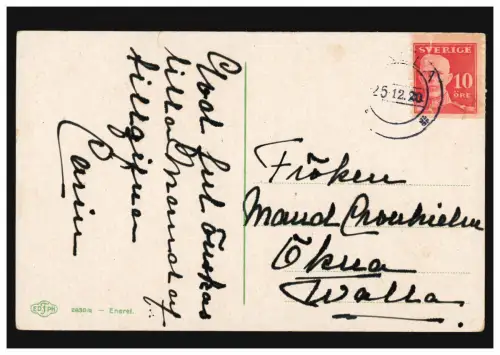 God Jul önskas
lilla Maud af
tillgifna
Carin
SVERIGE
10
ÖRE
25.12.20
Fröken
Maud Cronhielm
Ökna
Walla.
Enerel.